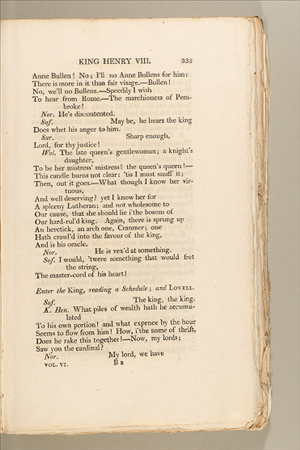 KING HENRY VIII. 335
Anne Bullen! No; I'll no Anne Bullens for him:
There is more in it than fair visage.—Bullen!
No, we'll no Bullens.—Speedily I wish
To hear from Rome.—The marchioness of Pem-
broke!
Nor. He's discontented.
Suf. May be, he hears the king
Does whet his anger to him.
Sur. Sharp enough,
Lord, for thy justice!
Wol. The late queen's gentlewoman; a knight's
daughter,
To be her mistress' mistress! the queen's queen!—
This candle burns not clear: 'tis I must snuff it;
Then, out it goes.—What though I know her vir-
tuous,
And well deserving? yet I know her for
A spleeny Lutheran; and not wholesome to
Our cause, that she should lie i'the bosom of
Our hard-rul'd king. Again, there is sprung up
An heretick, an arch one, Cranmer; one
Hath crawl'd into the favour of the king,
And is his oracle.
Nor. He is vex'd at something.
Suf. I would, 'twere something that would fret
the string,
The master-cord of his heart!
Enter the King, reading a Schedule; and LOVELL.
Suf. The king, the king.
K. Hen. What piles of wealth hath he accumu-
lated
To his own portion! and what expence by the hour
Seems to flow from him! How, i'the name of thrift,
Does he rake this together!—Now, my lords;
Saw you the cardinal?
Nor. My lord, we have
VOL. VI. B b